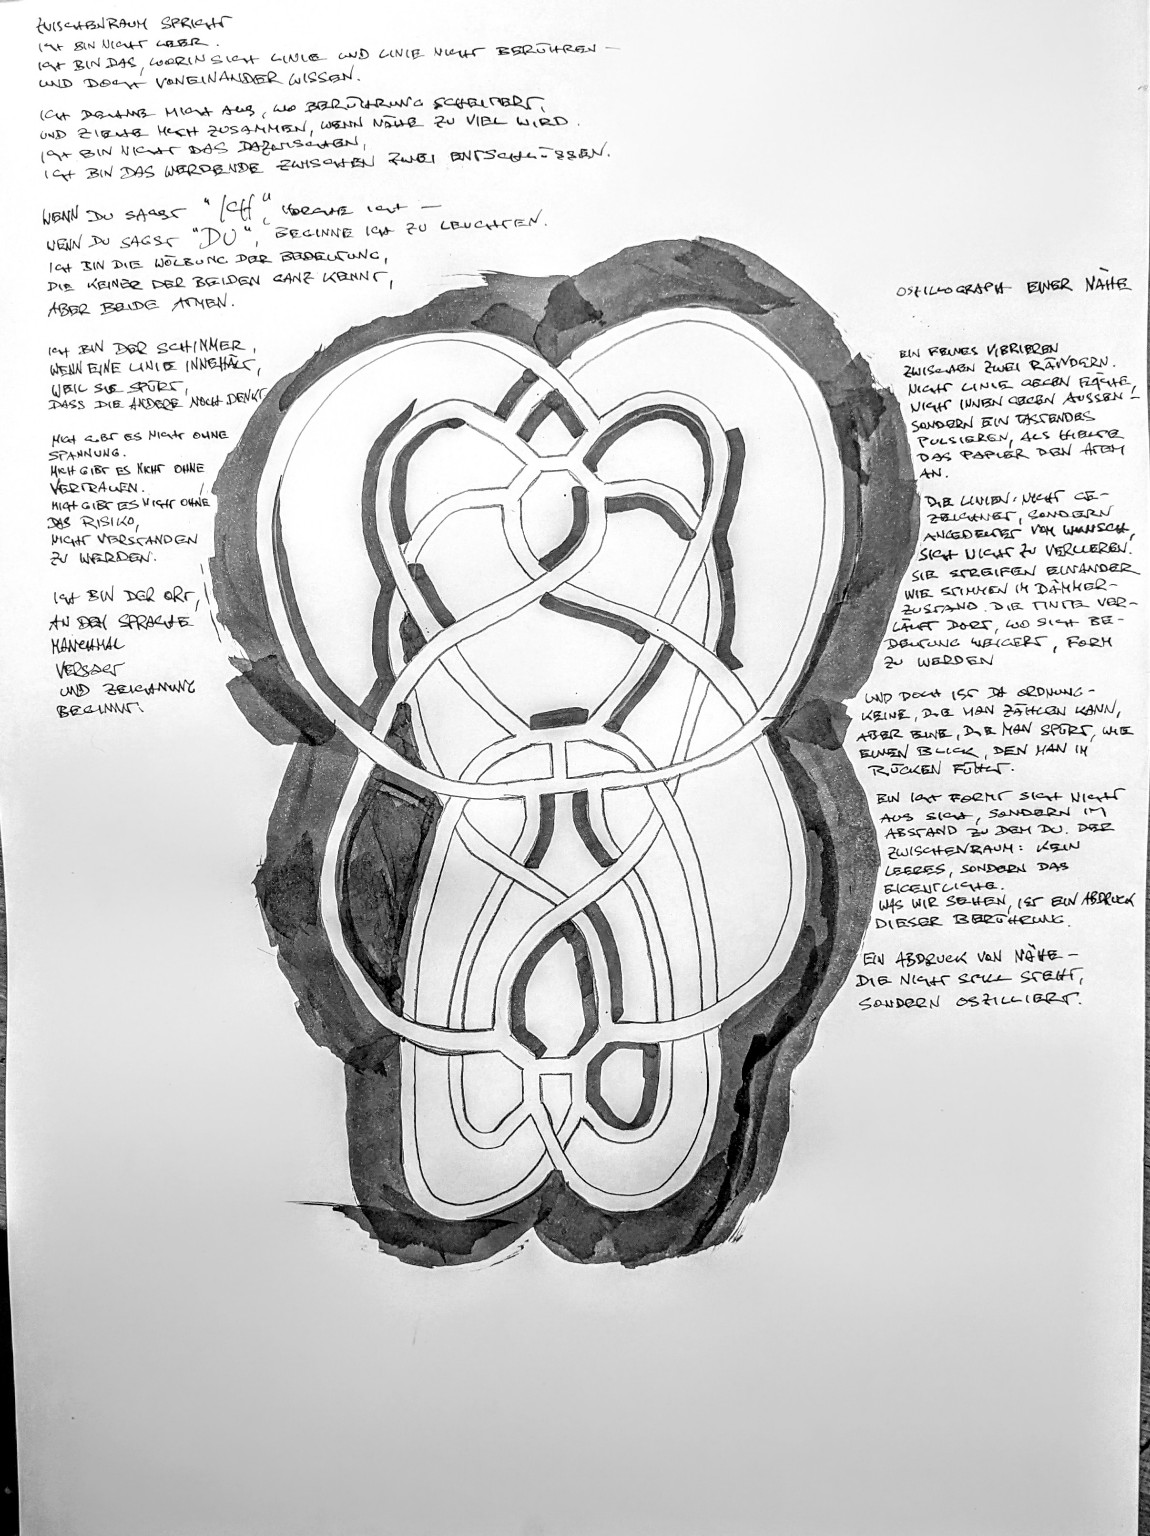 ZWISCHENRAUM SPRICHT
ICH BIN NICHT LEER.
ICH BIN DAS, WORIN SICH LINIE UND LINIE NICHT BERÜHREN –
UND DOCH VONEINANDER WISSEN.
ICH DEHNE MICH AUS, WO BERÜHRUNG SCHEITERT,
UND ZIEHE MICH ZUSAMMEN, WENN NÄHE ZU VIEL WIRD.
ICH BIN NICHT DAS DAZWISCHEN,
ICH BIN DAS WERDENDE ZWISCHEN ZWEI ENTSCHLÜSSEN.
WENN DU SAGST "ICH", HORCHE ICH –
WENN DU SAGST "DU", BEGINNE ICH ZU LEUCHTEN.
ICH BIN DIE WÖLBUNG DER BEDEUTUNG,
DIE KEINER DER BEIDEN GANZ KENNT,
ABER BEIDE ATMEN.
ICH BIN DER SCHIMMER,
WENN EINE LINIE INNEHÄLT,
WEIL SIE SPÜRT,
DASS DIE ANDERE NOCH DENKT
MICH GIBT ES NICHT OHNE
SPANNUNG.
MICH GIBT ES NICHT OHNE
VERTRAUEN.
MICH GIBT ES NICHT OHNE
DAS RISIKO,
NICHT VERSTANDEN
ZU WERDEN.
ICH BIN DER ORT,
AN DEM SPRACHE
MANCHMAL
VERSAGT
UND ZEICHNUNG
BEGINNT.
OSZILLOGRAPH EINER NÄHE
EIN FEINES VIBRIEREN
ZWISCHEN ZWEI RÄNDERN.
NICHT LINIE GEGEN FLÄCHE,
NICHT INNEN GEGEN AUSSEN –
SONDERN EIN TASTENDES
PULSIEREN, ALS HIELTE
DAS PAPIER DEN ATEM
AN.
DIE LINIEN: NICHT GE-
ZEICHNET, SONDERN
ANGEDEUTET VOM WUNSCH,
SICH NICHT ZU VERLIEREN.
SIE STREIFEN EINANDER
WIE STIMMEN IM DÄMMER-
ZUSTAND. DIE TINTE VER-
LÄUFT DORT, WO SICH BE-
DEUTUNG WEIGERT, FORM
ZU WERDEN
UND DOCH IST DA ORDNUNG –
KEINE, DIE MAN ZÄHLEN KANN,
ABER EINE, DIE MAN SPÜRT, WIE
EINEN BLICK, DEN MAN IM
RÜCKEN FÜHLT.
EIN ICH FORMT SICH NICHT
AUS SICH, SONDERN IM
ABSTAND ZU DEM DU. DER
ZWISCHENRAUM: KEIN
LEERES, SONDERN DAS
EIGENTLICHE.
WAS WIR SEHEN, IST EIN ABDRUCK
DIESER BERÜHRUNG.
EIN ABDRUCK VON NÄHE –
DIE NICHT STILL STEHT,
SONDERN OSZILLIERT.